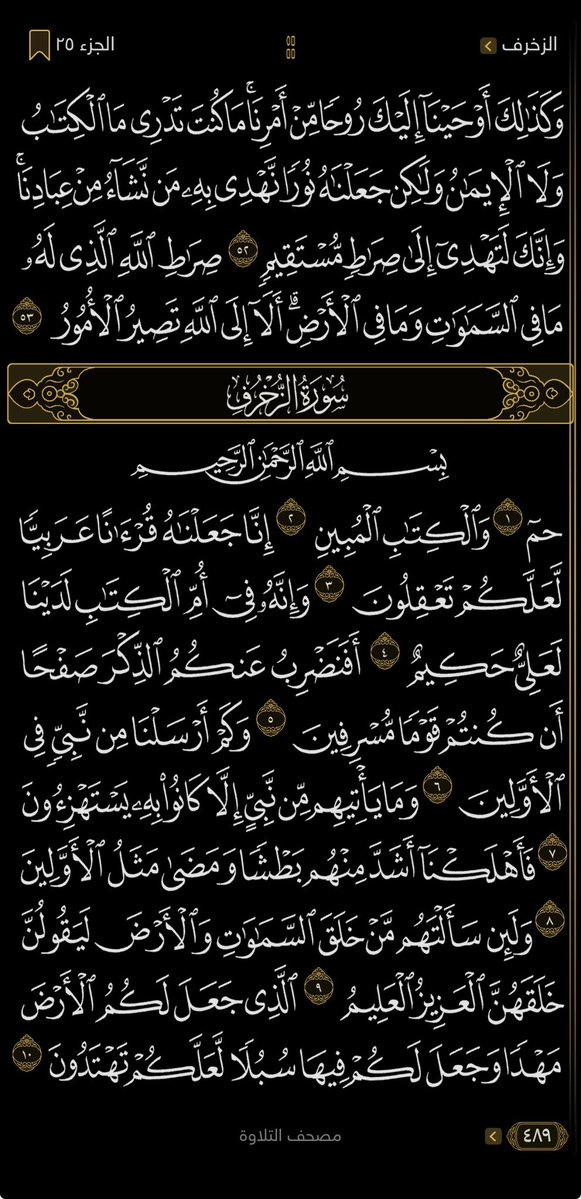 الزخرف
الجزء ٢٥
وَكَذَٰلِكَ أَوْحَيْنَآ إِلَيْكَ رُوحًا مِّنْ أَمْرِنَا ۚ مَا كُنتَ تَدْرِى مَا ٱلْكِتَٰبُ
وَلَا ٱلْإِيمَٰنُ وَلَٰكِن جَعَلْنَٰهُ نُورًا نَّهْدِى بِهِۦ مَن نَّشَآءُ مِنْ عِبَادِنَا ۚ
وَإِنَّكَ لَتَهْدِىٓ إِلَىٰ صِرَٰطٍ مُّسْتَقِيمٍ ٥٢ صِرَٰطِ ٱللَّهِ ٱلَّذِى لَهُۥ
مَا فِى ٱلسَّمَٰوَٰتِ وَمَا فِى ٱلْأَرْضِ ۗ أَلَآ إِلَى ٱللَّهِ تَصِيرُ ٱلْأُمُورُ ٥٣
سُورَةُ الزُّخْرُفِ
بِسْمِ ٱللَّهِ ٱلرَّحْمَٰنِ ٱلرَّحِيمِ
حمٓ ١ وَٱلْكِتَٰبِ ٱلْمُبِينِ ٢ إِنَّا جَعَلْنَٰهُ قُرْءَٰنًا عَرَبِيًّا
لَّعَلَّكُمْ تَعْقِلُونَ ٣ وَإِنَّهُۥ فِىٓ أُمِّ ٱلْكِتَٰبِ لَدَيْنَا
لَعَلِىٌّ حَكِيمٌ ٤ أَفَنَضْرِبُ عَنكُمُ ٱلذِّكْرَ صَفْحًا
أَن كُنتُمْ قَوْمًا مُّسْرِفِينَ ٥ وَكَمْ أَرْسَلْنَا مِن نَّبِىٍّ فِى
ٱلْأَوَّلِينَ ٦ وَمَا يَأْتِيهِم مِّن نَّبِىٍّ إِلَّا كَانُوا۟ بِهِۦ يَسْتَهْزِءُونَ
٧ فَأَهْلَكْنَآ أَشَدَّ مِنْهُم بَطْشًا وَمَضَىٰ مَثَلُ ٱلْأَوَّلِينَ
٨ وَلَئِن سَأَلْتَهُم مَّنْ خَلَقَ ٱلسَّمَٰوَٰتِ وَٱلْأَرْضَ لَيَقُولُنَّ
خَلَقَهُنَّ ٱلْعَزِيزُ ٱلْعَلِيمُ ٩ ٱلَّذِى جَعَلَ لَكُمُ ٱلْأَرْضَ
مَهْدًا وَجَعَلَ لَكُمْ فِيهَا سُبُلًا لَّعَلَّكُمْ تَهْتَدُونَ ١٠
٤٨٩
مصحف التلاوة